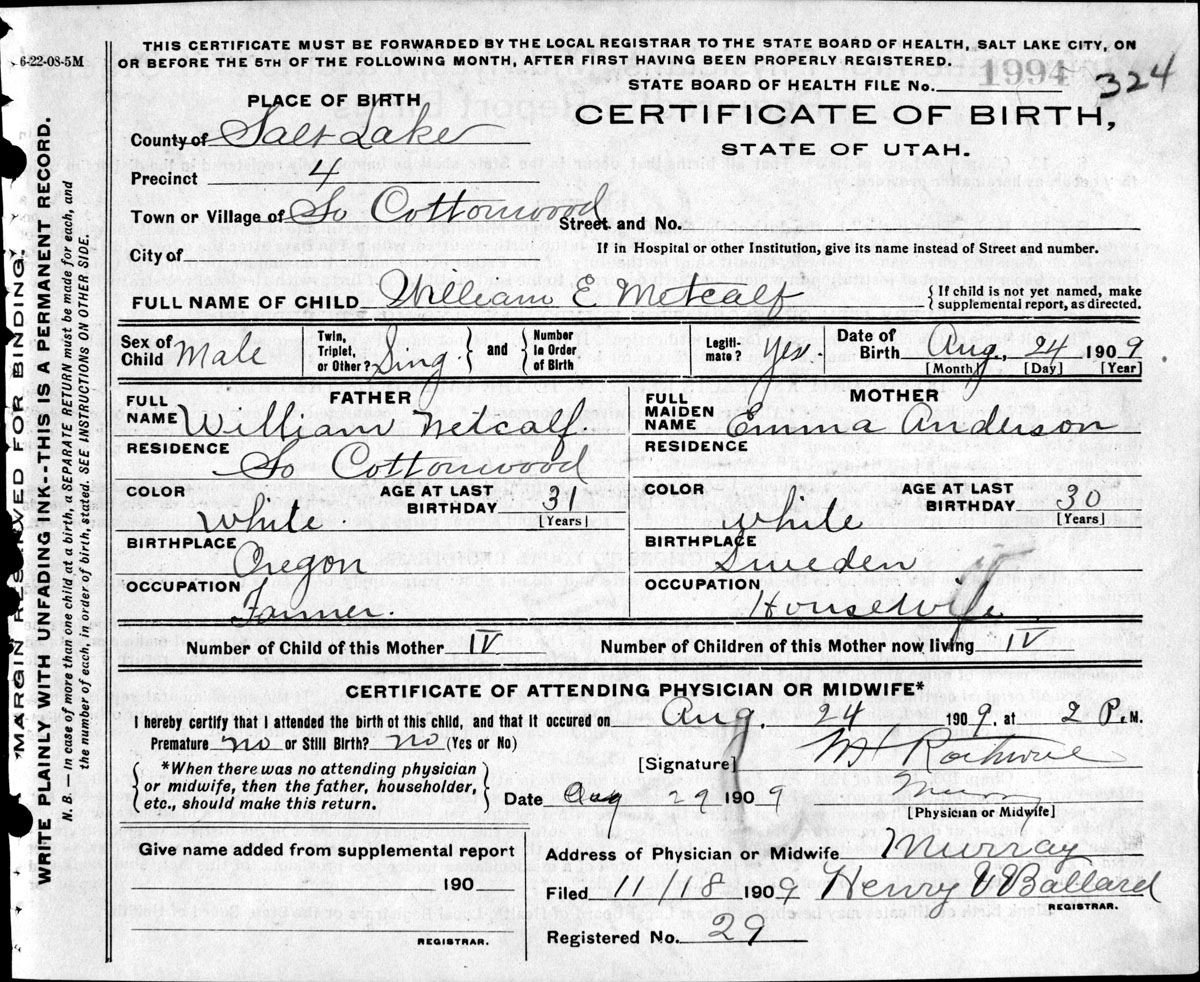 THIS CERTIFICATE MUST BE FORWARDED BY THE LOCAL REGISTRAR TO THE STATE BOARD OF HEALTH, SALT LAKE CITY, ON
OR BEFORE THE 5TH OF THE FOLLOWING MONTH, AFTER FIRST HAVING BEEN PROPERLY REGISTERED.
6-22-08-5M
STATE BOARD OF HEALTH FILE No. 1994 324
PLACE OF BIRTH
CERTIFICATE OF BIRTH,
STATE OF UTAH.
County of Salt Lake
Precinct 4
Town or Village of So Cottonwood Street and No.
If in Hospital or other Institution, give its name instead of Street and number.
City of
FULL NAME OF CHILD William E Metcalf { If child is not yet named, make
supplemental report, as directed.
Sex of Child Male
Twin, Triplet, or Other? Sing } and { Number in Order of Birth
Legiti- mate? Yes.
Date of Birth Aug, 24 1909
[Month] [Day] [Year]
FATHER
FULL NAME William Metcalf.
RESIDENCE So Cottonwood
COLOR White.
AGE AT LAST BIRTHDAY 31 [Years]
BIRTHPLACE Oregon
OCCUPATION Farmer.
MOTHER
FULL MAIDEN NAME Emma Anderson
RESIDENCE
COLOR White
AGE AT LAST BIRTHDAY 30 [Years]
BIRTHPLACE Sweden
OCCUPATION Housewife
Number of Child of this Mother IV Number of Children of this Mother now living IV
CERTIFICATE OF ATTENDING PHYSICIAN OR MIDWIFE*
I hereby certify that I attended the birth of this child, and that it occured on Aug. 24 1909, at 2 P.M.
Premature no or Still Birth? no (Yes or No)
[Signature]
{ *When there was no attending physician
or midwife, then the father, householder,
etc., should make this return. }
Date Aug 29 1909
[Physician or Midwife]
Give name added from supplemental report
190
REGISTRAR.
Address of Physician or Midwife Murray
Filed 11/18 1909 Henry V Ballard
REGISTRAR.
Registered No. 29
MARGIN RESERVED FOR BINDING.
WRITE PLAINLY WITH UNFADING INK--THIS IS A PERMANENT RECORD.
N. B. — In case of more than one child at a birth, a SEPARATE RETURN must be made for each, and
the number of each, in order of birth, stated. SEE INSTRUCTIONS ON OTHER SIDE.